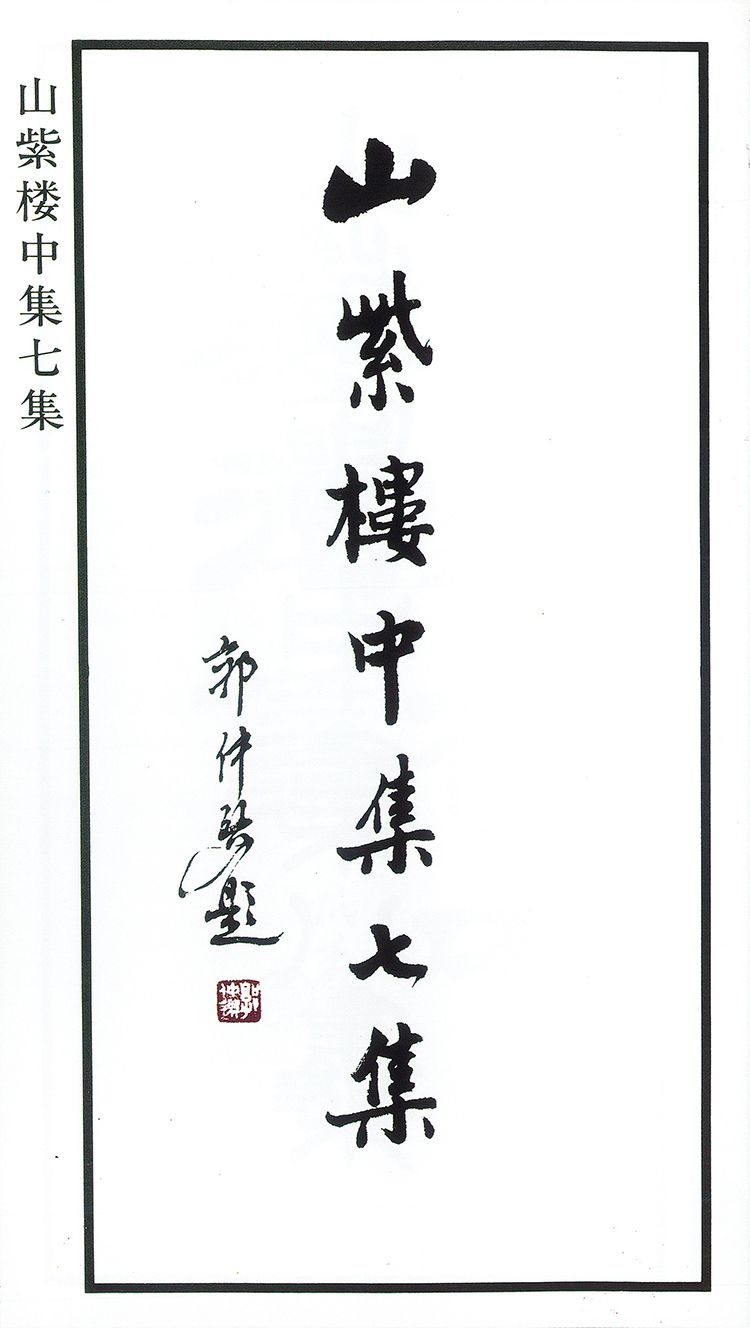 山紫樓中集七集
郭仲選題
郭仲選
山紫楼中集七集